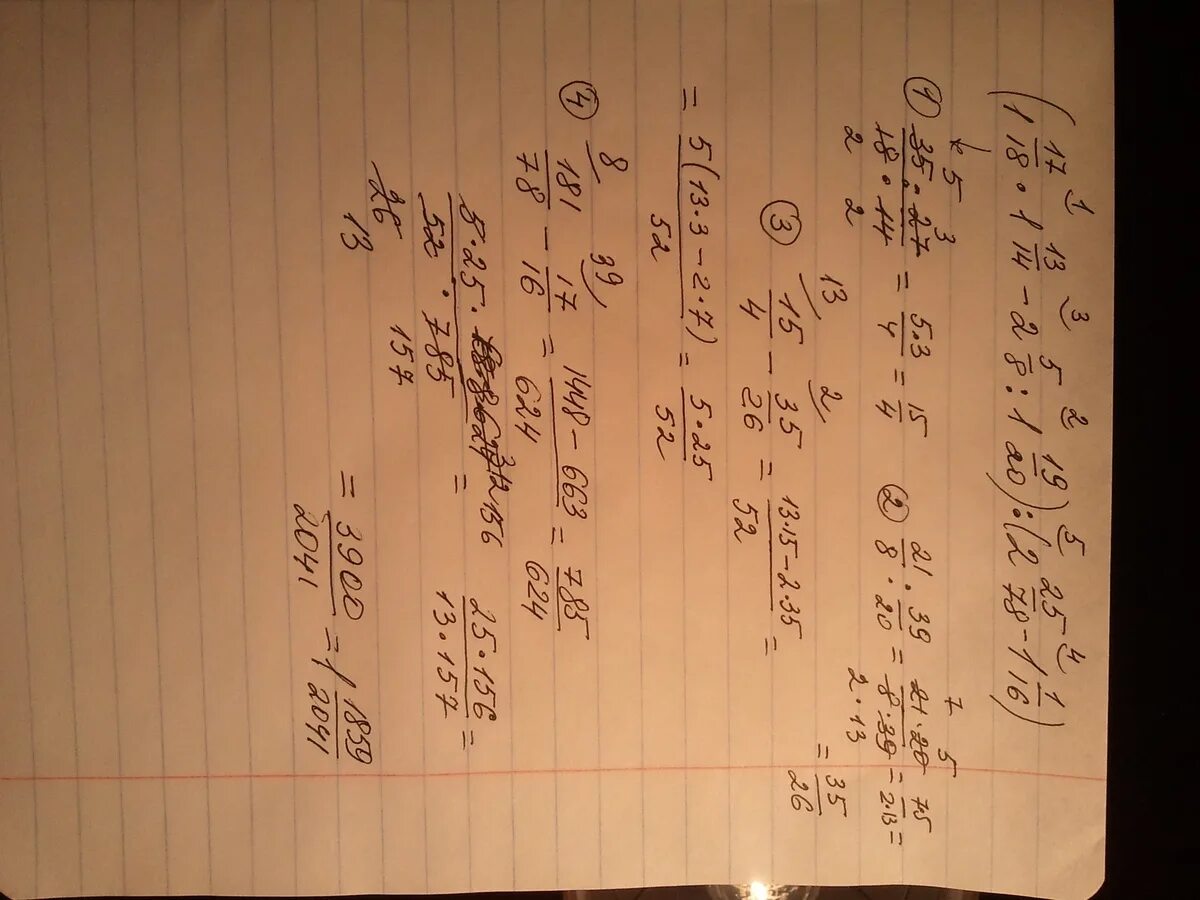 (1 17/18 · 1 13/14 - 2 5/8 : 1 19/20) : (2 25/78 - 1 1/16)
① 35·27/18·14 = 5·3/4 = 15/4
② 21/8 : 39/20 = 21·20/8·39 = 7·5/2·13 =
= 35/26
③ 15/4 - 35/26 = 13·15-2·35/52 =
= 5(13·3-2·7)/52 = 5·25/52
④ 181/78 - 17/16 = 1448-663/624 = 785/624
5·25·624/52·785 = 25·156/13·157 =
= 3900/2041 = 1 1859/2041